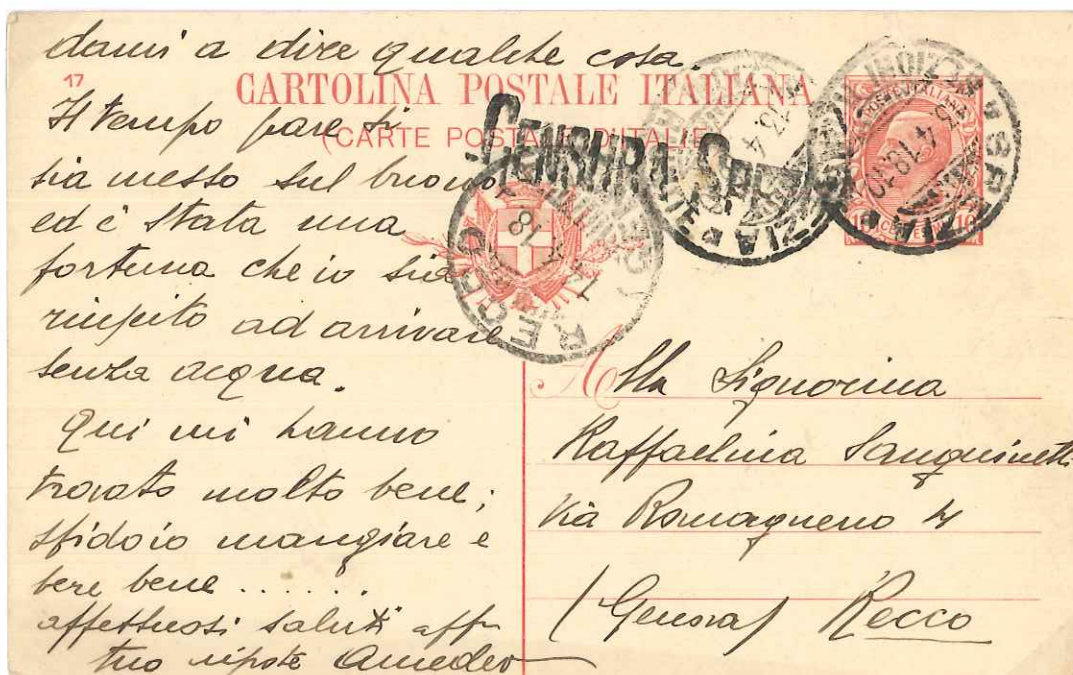 dami a dire qualche cosa.
17
CARTOLINA POSTALE ITALIANA
(CARTE POSTALE D'ITALIE)
CENSURA
Il tempo pare si
sia messo sul buono
ed è stata una
fortuna che io sia
riuscito ad arrivare
senza acqua.
Qui mi hanno
trovato molto bene;
sfido io mangiare e
bere bene ......
affettuosi saluti aff
tuo nipote Amedeo
POSTE ITALIANE
SPEZIA
RECCO
18
Alla Signorina
Raffaelina Sanguinetti
Via Romagneno 4
(Genova) Recco